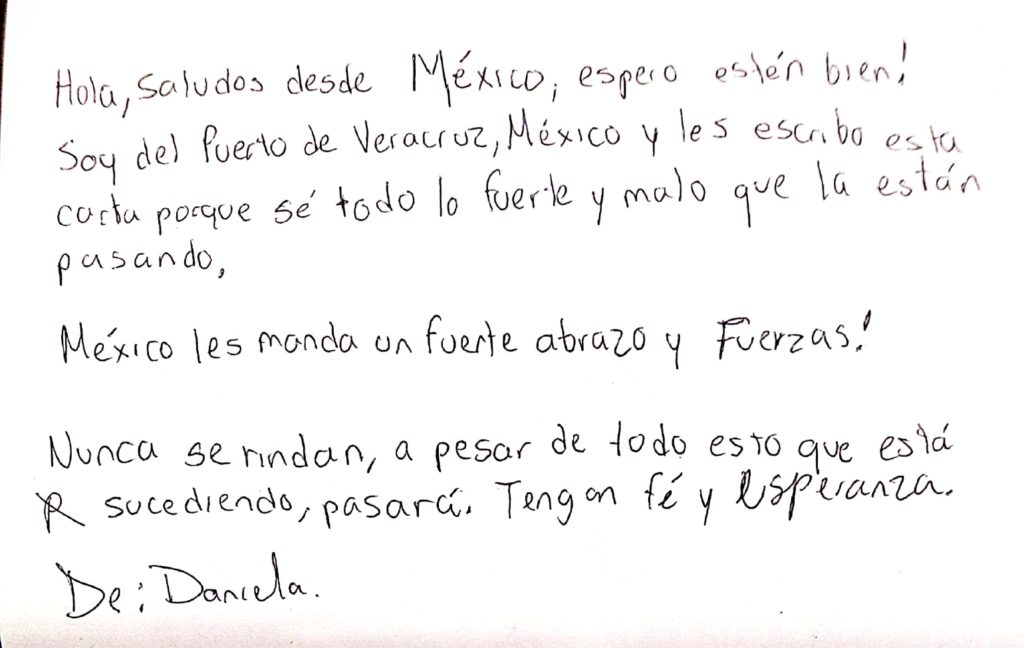 Hola, saludos desde México, espero estén bien!
Soy del Puerto de Veracruz, México y les escribo esta
carta porque sé todo lo fuerte y malo que la están
pasando,
México les manda un fuerte abrazo y Fuerzas!
Nunca se rindan, a pesar de todo esto que está
sucediendo, pasará. Tengan fé y esperanza.
De: Daniela.